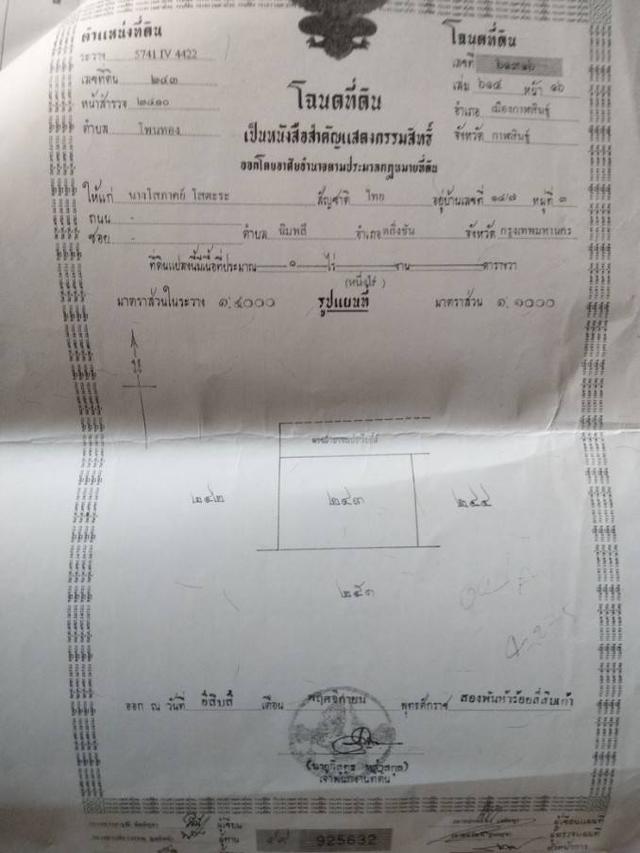 ตำแหน่งที่ดิน
ระวาง 5741 IV 4422
เลขที่ดิน ๒๔๓
หน้าสำรวจ ๒๔๑๐
ตำบล โพนทอง
โฉนดที่ดิน
เลขที่
เล่ม ๖๑๕ หน้า ๑๖
อำเภอ เมืองกาฬสินธุ์
จังหวัด กาฬสินธุ์
โฉนดที่ดิน
เป็นหนังสือสำคัญแสดงกรรมสิทธิ์
ออกโดยอาศัยอำนาจตามประมวลกฎหมายที่ดิน
ให้แก่ นางโสภาคย์ โสตะระ สัญชาติ ไทย อยู่บ้านเลขที่ ๑๔/๗ หมู่ที่ ๓
ถนน -
ซอย - ตำบล ฉิมพลี อำเภอ ตลิ่งชัน จังหวัด กรุงเทพมหานคร
ที่ดินแปลงนี้มีเนื้อที่ประมาณ ๑ ไร่ งาน ตารางวา
(หนึ่งไร่)
มาตราส่วนในระวาง ๑:๔๐๐๐ รูปแผนที่ มาตราส่วน ๑:๑๐๐๐
น
ทางสาธารณประโยชน์
๒๔๒ ๒๔๓ ๒๔๔
๒๕๓
ออก ณ วันที่ ยี่สิบสี่ เดือน พฤศจิกายน พุทธศักราช สองพันห้าร้อยสี่สิบเก้า
เจ้าพนักงานที่ดิน
ผู้เขียน
ผู้ทาน
925632
ผู้เขียนแผนที่
ผู้ตรวจแผนที่
หัวหน้าการ